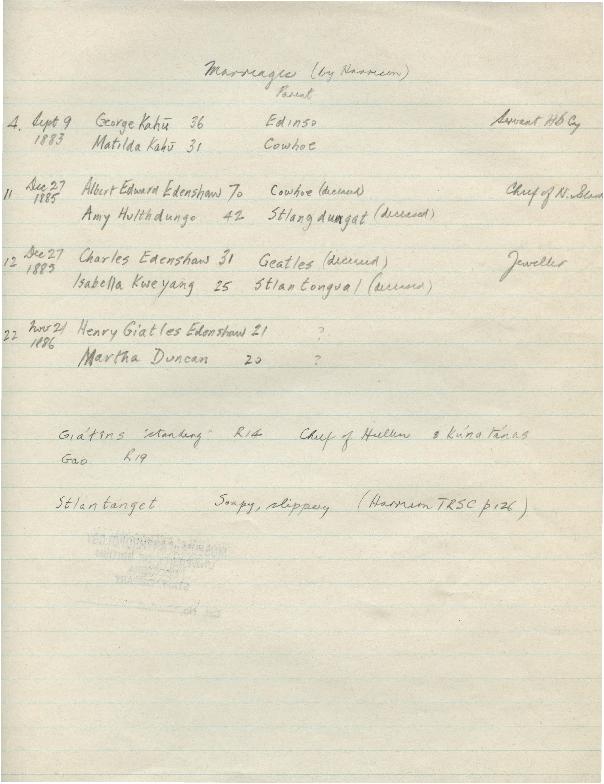 Marriages (by Harrison)
Parent
4. Sept 9 George Kahū 36 Edinso Servant HB Cy
1883 Matilda Kahū 31 Cowhoe
11 Dec 27 Albert Edward Edenshaw 70 Cowhoe (deceased) Chief of N.
1885 Amy Hulthdungo 42 Stlangdungat (deceased)
12 Dec 27 Charles Edenshaw 31 Geatles (deceased) Jeweller
1885 Isabella Kweyang 25 Stlantongual (deceased)
22 Nov 21 Henry Giatles Edenshaw 21 ?
1886 Martha Duncan 20 ?
Giatins "standing" R14 Chief of
Gao R19
Stlantanget Soapy, slippery (Harrison TRSC p 126)